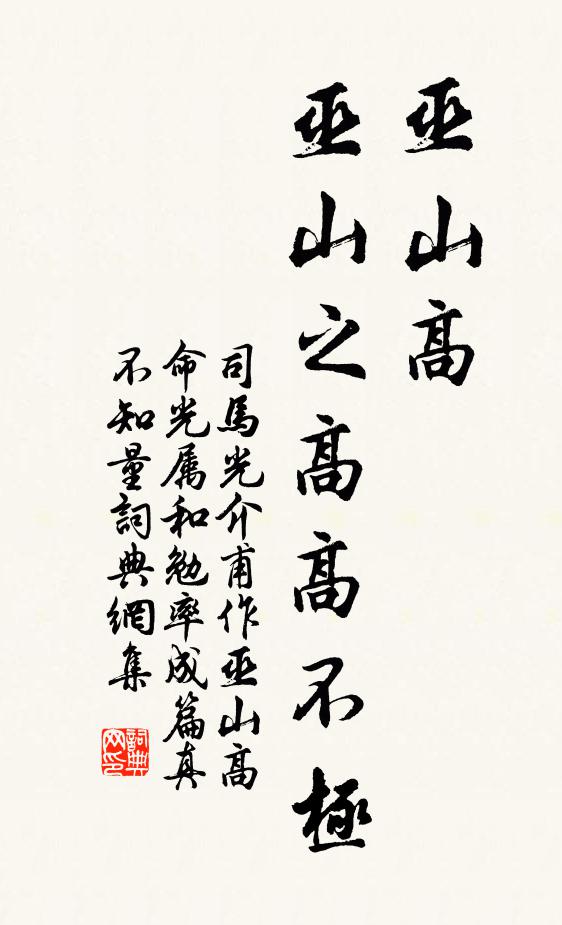 巫山高
巫山之高高不極
司馬光介甫作巫山高
命光属和勉率成篇真
不知量詞典網集
詞典网印